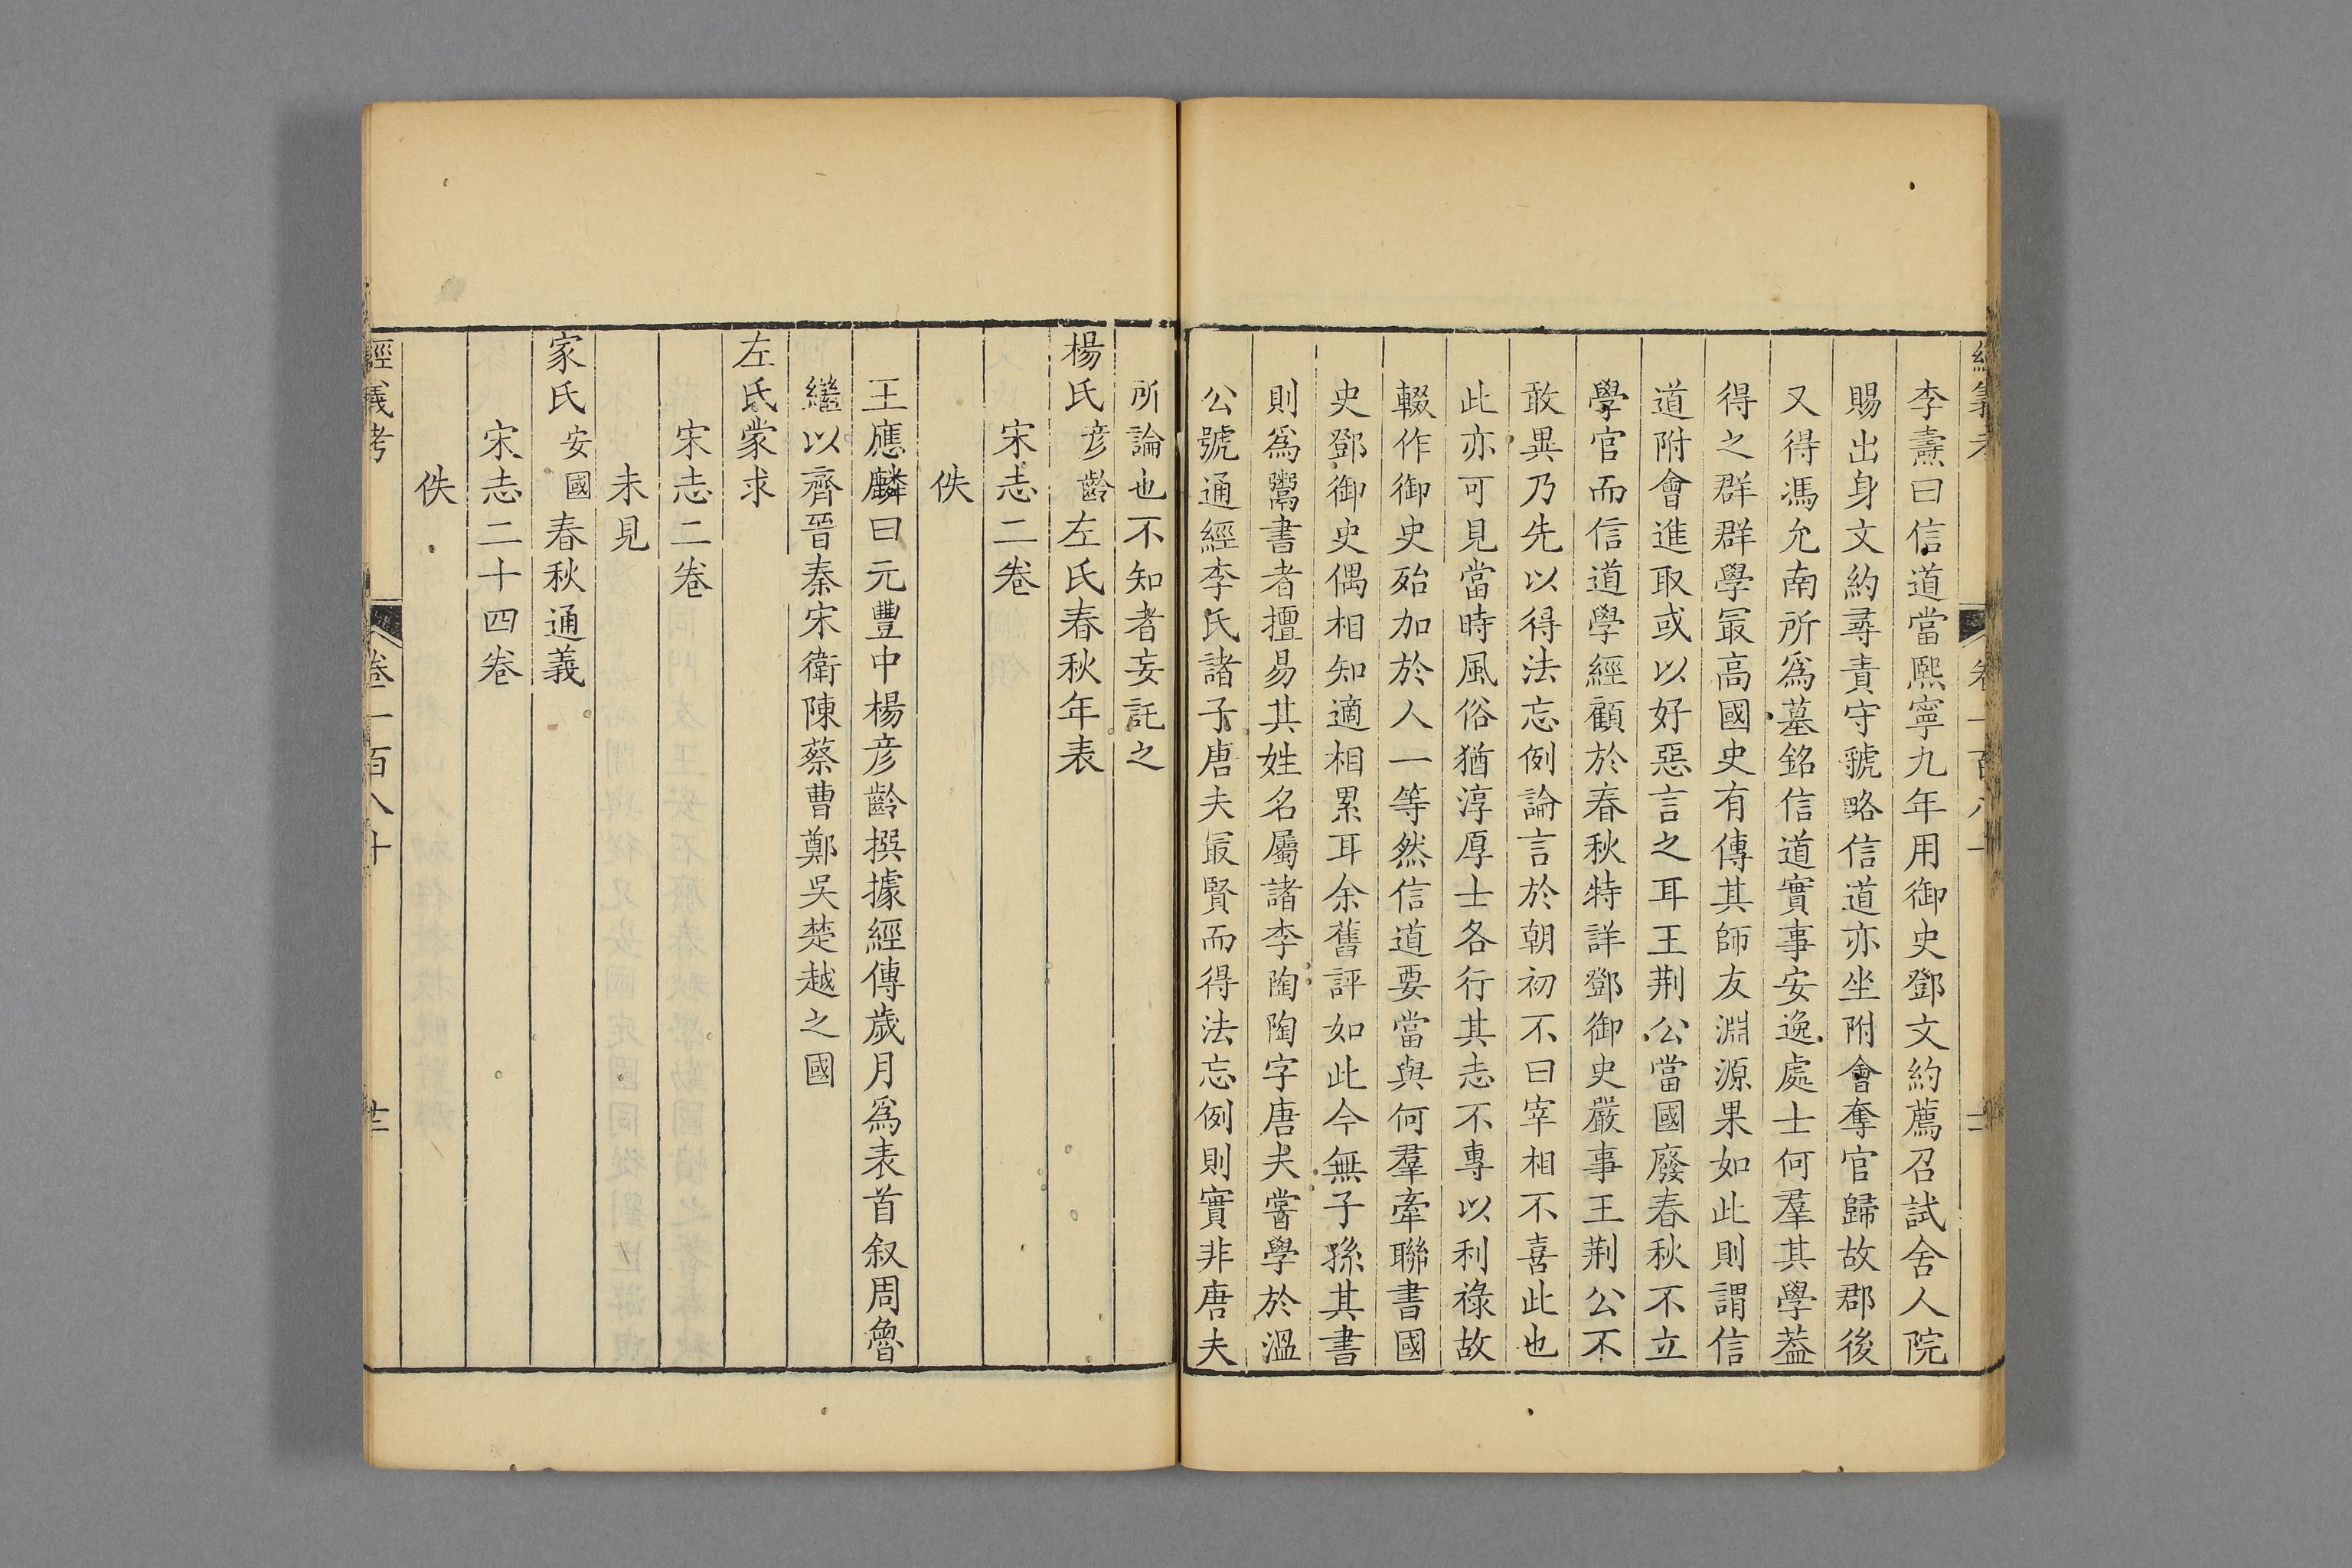 李燾曰信道當熙寧九年用御史鄧文約薦召試舍人院
賜出身文約尋責守虢略信道亦坐附會奪官歸故郡後
又得馮允南所爲墓銘信道實事安逸處士何羣其學葢
得之群群學㝡高國史有傳其師友淵源果如此則謂信
道附會進取或以好惡言之耳王荆公當國廢春秋不立
學官而信道學經顧於春秋特詳鄧御史嚴事王荆公不
敢異乃先以得法忘例論言於朝初不曰宰相不喜此也
此亦可見當時風俗猶淳厚士各行其志不專以利祿故
輟作御史殆加於人一等然信道要當與何羣牽聯書國
史鄧御史偶相知適相累耳余舊評如此今無子孫其書
則爲鬻書者擅易其姓名屬諸李陶陶字唐夫嘗學於溫
公號通經李氏諸子唐夫㝡賢而得法忘例則實非唐夫
所論也不知者妄託之
楊氏彦齡左氏春秋年表
宋志二卷
佚
王應麟曰元豐中楊彦齡撰據經傳歲月爲表首叙周魯
繼以齊晉秦宋衛陳蔡曹鄭吳楚越之國
左氏蒙求
宋志二卷
未見
家氏安國春秋通義
宋志二十四卷
佚
經義考 卷一百八十